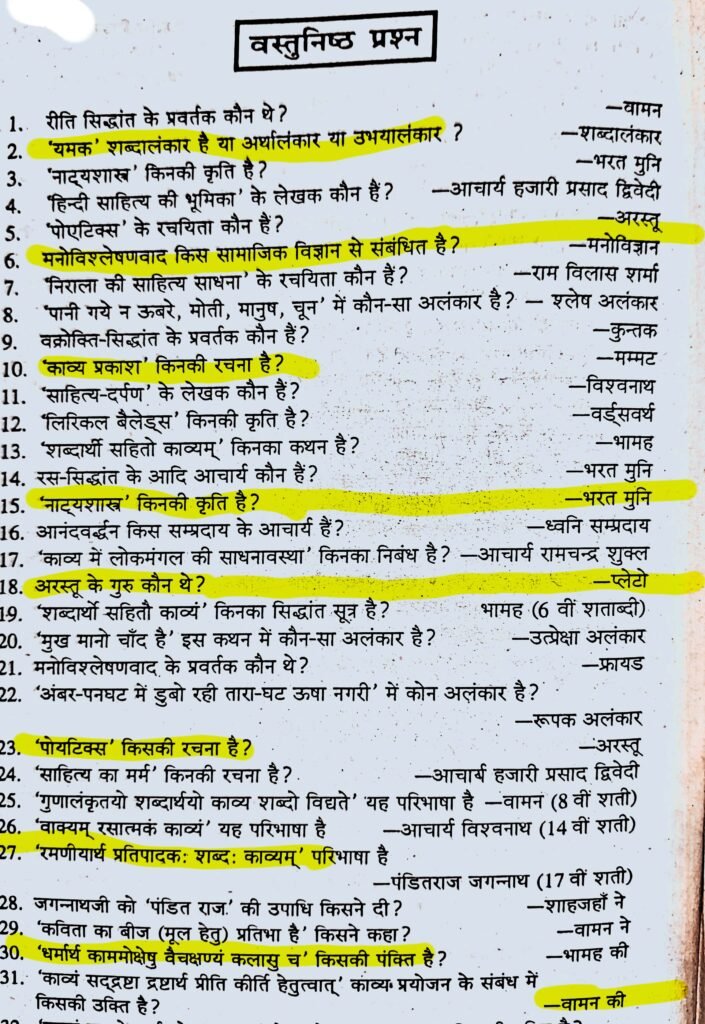 वस्तुनिष्ठ प्रश्न
1. रीति सिद्धांत के प्रवर्तक कौन थे? —वामन
2. 'यमक' शब्दालंकार है या अर्थालंकार या उभयालंकार ? —शब्दालंकार
3. 'नाट्यशास्त्र' किनकी कृति है? —भरत मुनि
4. 'हिन्दी साहित्य की भूमिका' के लेखक कौन हैं? —आचार्य हजारी प्रसाद द्विवेदी
5. 'पोएटिक्स' के रचयिता कौन हैं? —अरस्तू
6. मनोविश्लेषणवाद किस सामाजिक विज्ञान से संबंधित है? —मनोविज्ञान
7. 'निराला की साहित्य साधना' के रचयिता कौन हैं? —राम विलास शर्मा
8. 'पानी गये न ऊबरे, मोती, मानुष, चून' में कौन-सा अलंकार है? — श्लेष अलंकार
9. वक्रोक्ति-सिद्धांत के प्रवर्तक कौन हैं? —कुन्तक
10. 'काव्य प्रकाश' किनकी रचना है? —मम्मट
11. 'साहित्य-दर्पण' के लेखक कौन हैं? —विश्वनाथ
12. 'लिरिकल बैलेड्स' किनकी कृति है? —वर्ड्सवर्थ
13. 'शब्दार्थी सहितो काव्यम्' किनका कथन है? —भामह
14. रस-सिद्धांत के आदि आचार्य कौन हैं? —भरत मुनि
15. 'नाट्यशास्त्र' किनकी कृति है? —भरत मुनि
16. आनंदवर्द्धन किस सम्प्रदाय के आचार्य हैं? —ध्वनि सम्प्रदाय
17. 'काव्य में लोकमंगल की साधनावस्था' किनका निबंध है? —आचार्य रामचन्द्र शुक्ल
18. अरस्तू के गुरु कौन थे? —प्लेटो
19. 'शब्दार्थो सहितौ काव्यं' किनका सिद्धांत सूत्र है? भामह (6 वीं शताब्दी)
20. 'मुख मानो चाँद है' इस कथन में कौन-सा अलंकार है? —उत्प्रेक्षा अलंकार
21. मनोविश्लेषणवाद के प्रवर्तक कौन थे? —फ्रायड
22. 'अंबर-पनघट में डुबो रही तारा-घट ऊषा नगरी' में कोन अलंकार है?
—रूपक अलंकार
23. 'पोयटिक्स' किसकी रचना है? —अरस्तू
24. 'साहित्य का मर्म' किनकी रचना है? —आचार्य हजारी प्रसाद द्विवेदी
25. 'गुणालंकृतयो शब्दार्थयो काव्य शब्दो विद्यते' यह परिभाषा है —वामन (8 वीं शती)
26. 'वाक्यम् रसात्मकं काव्यं' यह परिभाषा है —आचार्य विश्वनाथ (14 वीं शती)
27. 'रमणीयार्थ प्रतिपादकः शब्दः काव्यम्' परिभाषा है
—पंडितराज जगन्नाथ (17 वीं शती)
28. जगन्नाथजी को 'पंडित राज' की उपाधि किसने दी? —शाहजहाँ ने
29. 'कविता का बीज (मूल हेतु) प्रतिभा है' किसने कहा? —वामन ने
30. 'धर्मार्थ काममोक्षेषु वैचक्षण्यं कलासु च' किसकी पंक्ति है? —भामह की
31. 'काव्यं सद्द्रष्टा द्रष्टार्थ प्रीति कीर्ति हेतुत्वात्' काव्य प्रयोजन के संबंध में
किसकी उक्ति है? —वामन की